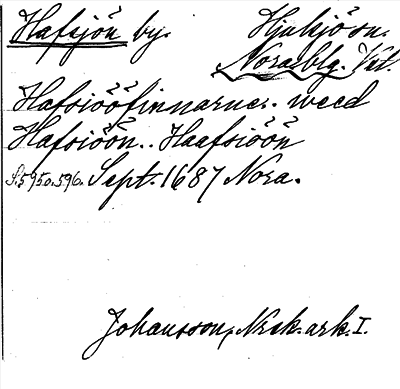 Hafsjön by. Hjulsjö sn.
Nora blg. Vstl.
Hafsiööfinnarne. weed
Hafsiöön.. Haafsiöön
S. 595 o. 596. Sept. 1687 Nora.
Johansson, Nrsk. ark. I.